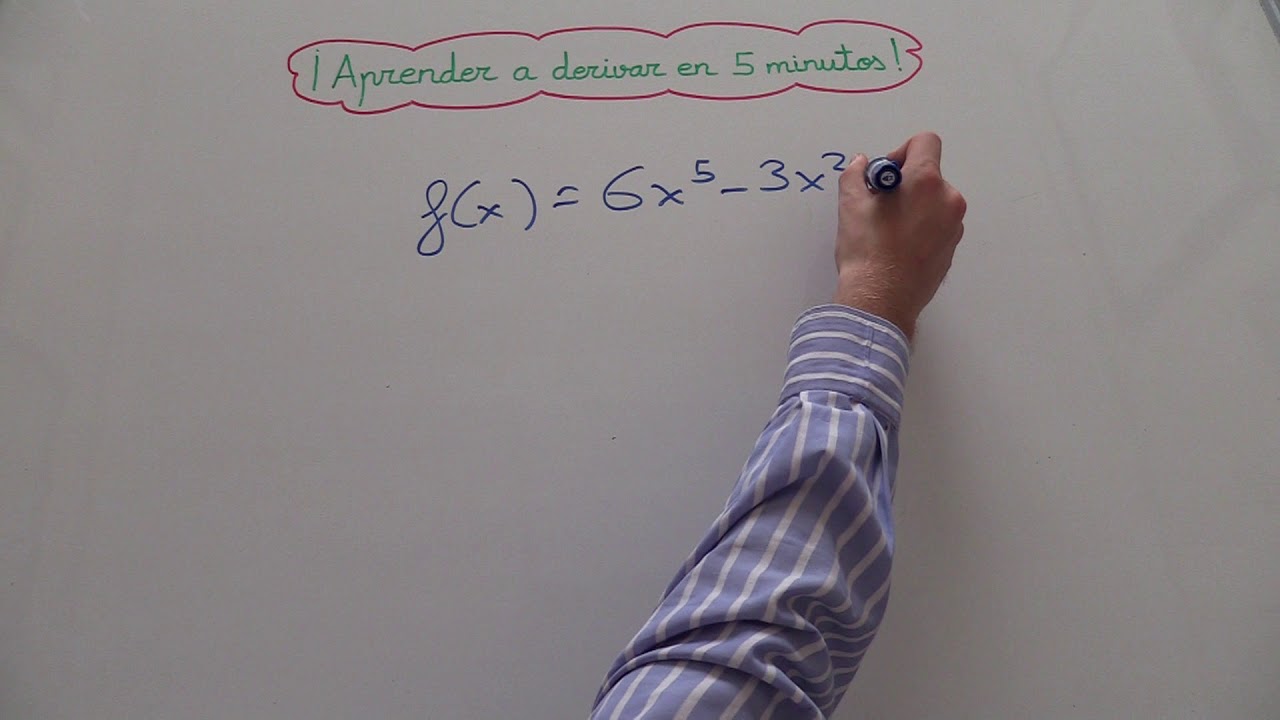 ¡Aprender a derivar en 5 minutos!
f(x) = 6x⁵ - 3x²